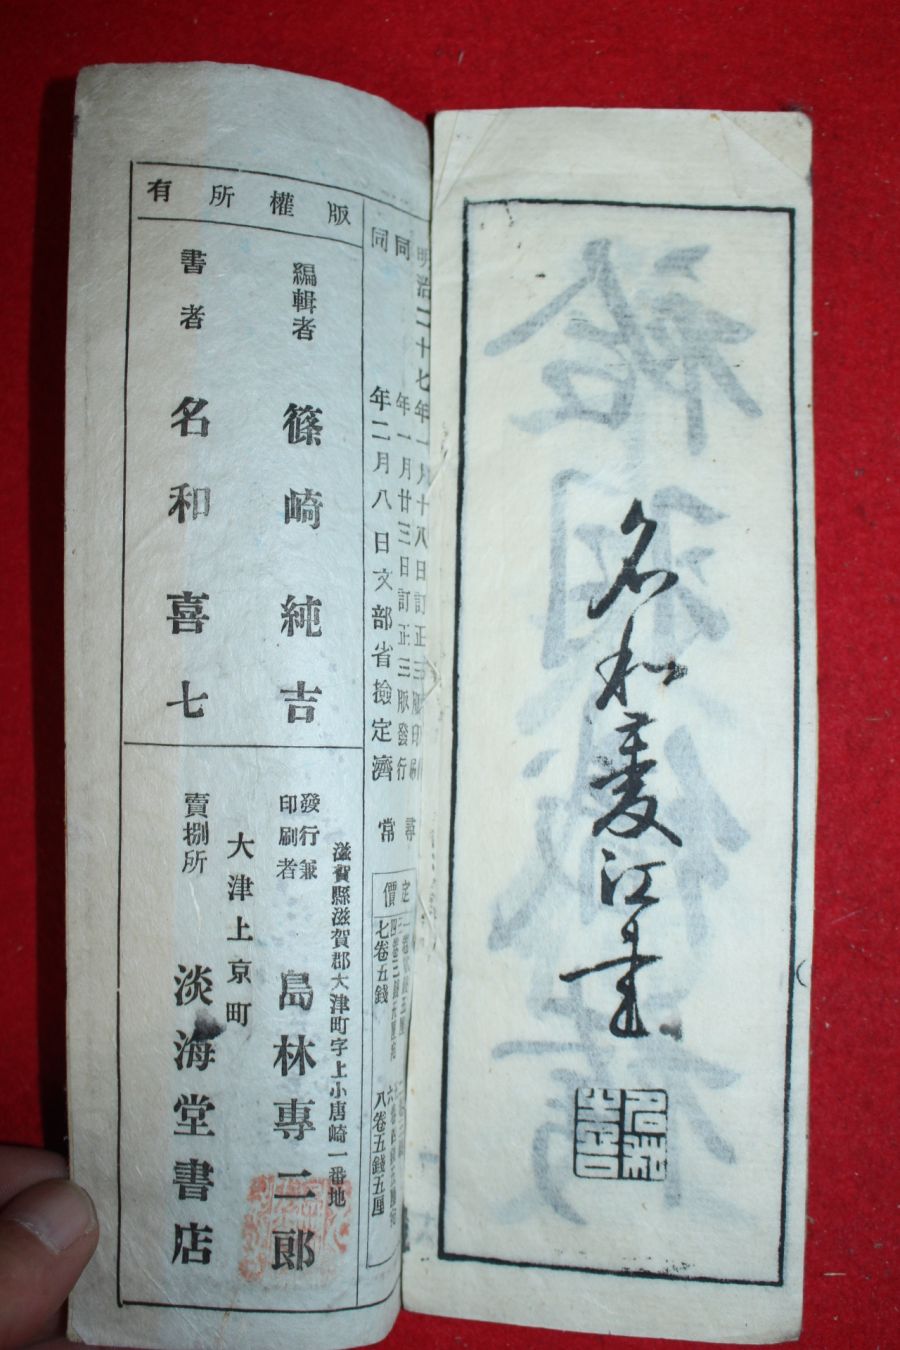 名和菱江書
明治二十七年一月十八日訂正三版印刷
同年一月廿三日訂正三版發行
同年二月八日文部省撿定濟
尋常
定價
七卷五錢
八卷五錢五厘
版權所有
編輯者 篠崎純吉
書者 名和喜七
滋賀縣滋賀郡大津町字上小唐崎一番地
發行兼印刷者 島林專二郎
大津上京町
賣捌所 淡海堂書店